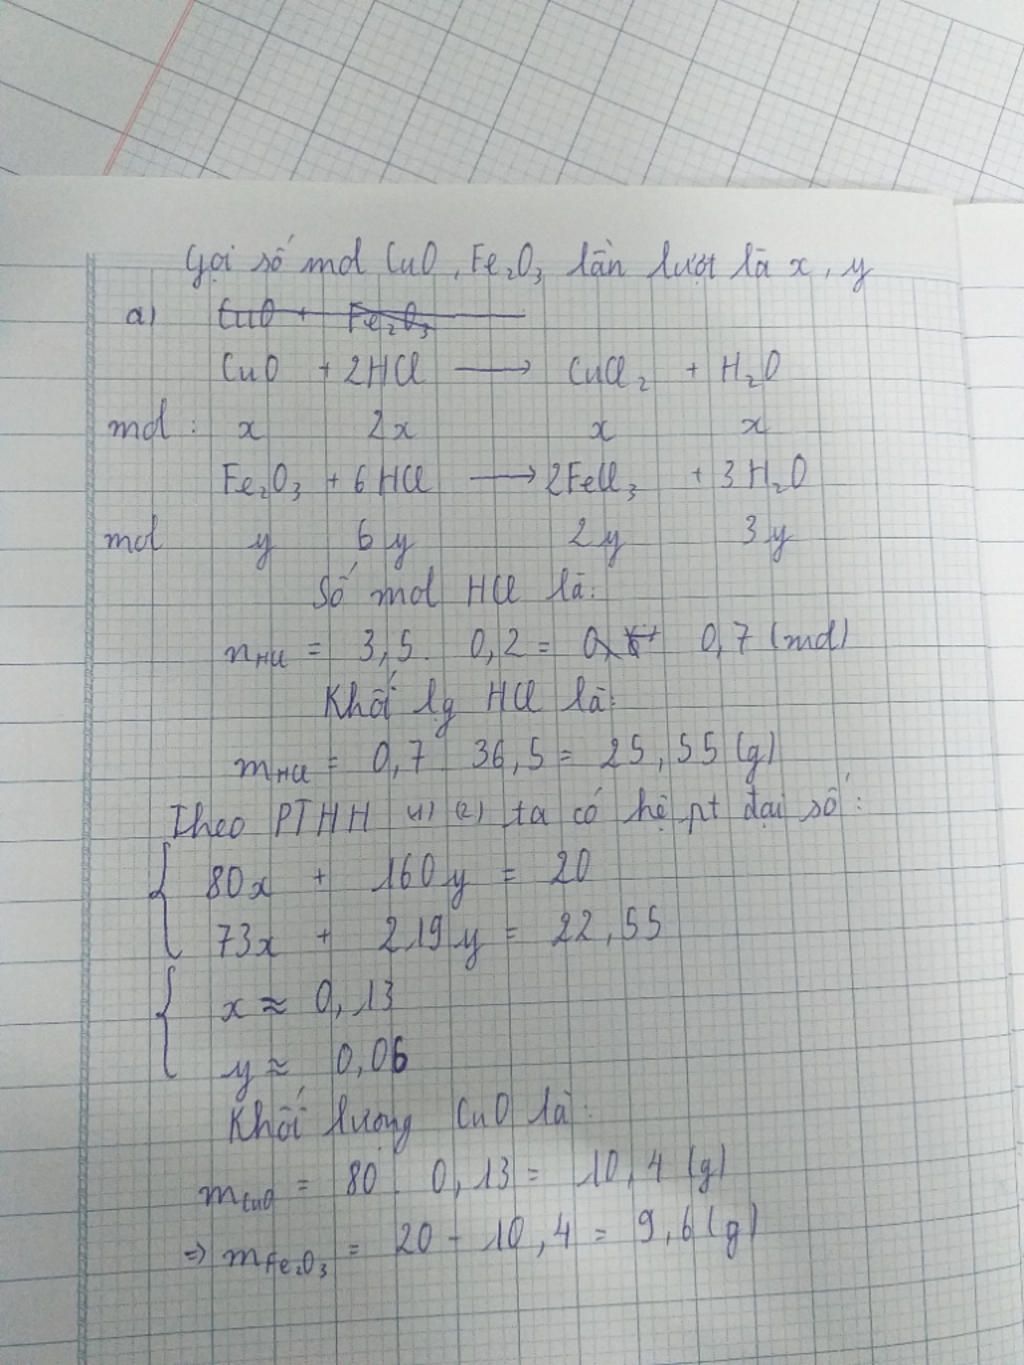 Gọi số mol CuO, Fe₂O₃ lần lượt là x, y
a) CuO + Fe₂O₃
CuO + 2HCl ⟶ CuCl₂ + H₂O
mol: x 2x x x
Fe₂O₃ + 6HCl ⟶ 2FeCl₃ + 3H₂O
mol y 6y 2y 3y
Số mol HCl là:
nHCl = 3,5. 0,2 = 0,7 (mol)
Khối lg HCl là:
mHCl = 0,7 36,5 = 25,55 (g)
Theo PTHH (1) (2) ta có hệ pt đại số:
80x + 160y = 20
73x + 219y = 22,55
x ≈ 0,13
y ≈ 0,06
Khối lượng CuO là:
mCuO = 80. 0,13 = 10,4 (g)
=> mFe₂O₃ = 20 - 10,4 = 9,6 (g)